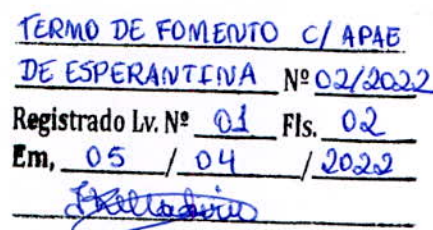 TERMO DE FOMENTO C/ APAE
DE ESPERANTINA Nº 02/2022
Registrado Lv. Nº 01 Fls. 02
Em, 05 / 04 / 2022